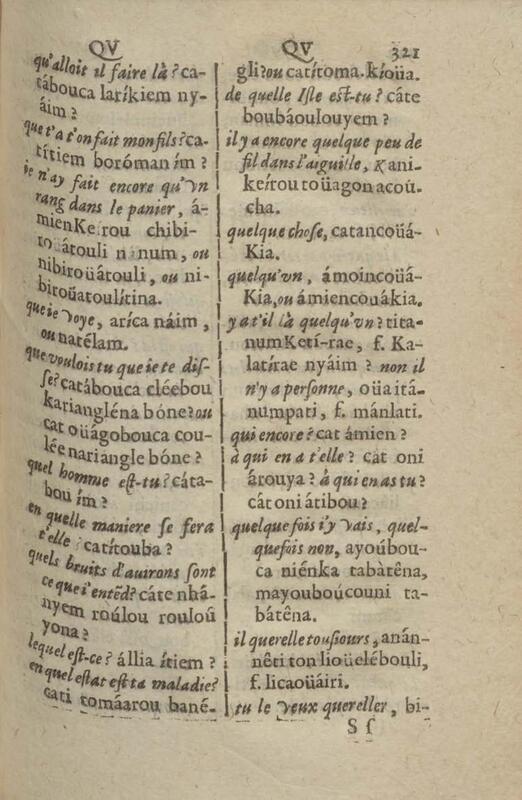 QV
qu'alloit il faire là? ca-
tàbouca laríkiem ny-
áim?
que t'a t'on fait mon fils? ca-
títiem boróman ím?
ie n'ay fait encore qu'vn
rang dans le panier, á-
mienKeírou chibi-
toüátouli nanum, ou
nibiroüátouli, ou ni-
biroüatoulítina.
que ie voye, aríca náim,
ou natélam.
que voulois tu que ie te dis-
se? catábouca cléebou
karianglénabóne? ou
cat oüágobouca cou-
lée nariangle bóne?
quel homme est-tu? cáta-
bou ím?
en quelle maniere se fera
t'elle? catítouba?
quels bruits d'auirons sont
ce que i'entēd? cáte nhá-
nyem roúlou rouloú
yona?
lequel est-ce? állia ítiem?
en quel estat est ta maladie?
cati tomáarou bané-
QV 321
gli? ou catítoma. kíoüa.
de quelle Isle est-tu? cáte
boubáoulouyem?
il y a encore quelque peu de
fil dans l'aiguille, Kani-
keírou toüagon acoú-
cha.
quelque chose, catancoüá-
Kia.
quelqu'vn, ámoincoüá-
Kia, ou ámiencouákia.
y at'il là quelqu'vn? tita-
numKetí-rae, f. Ka-
latírae nyáim? non il
n'y a personne, oüaitá-
numpati, f. mánlati.
qui encore? cat ámien?
à qui en a t'elle? càt oni
árouya? à qui en as tu?
cát oni átibou?
quelque fois i'y vais, quel-
quefois non, ayoúbou-
ca niénka tabàtêna,
mayouboúcouni ta-
bátêna.
il querelle tousiours, anán-
nêti ton lioüelébouli,
f. licaoüáiri.
tu le veux quereller, bi-
S f